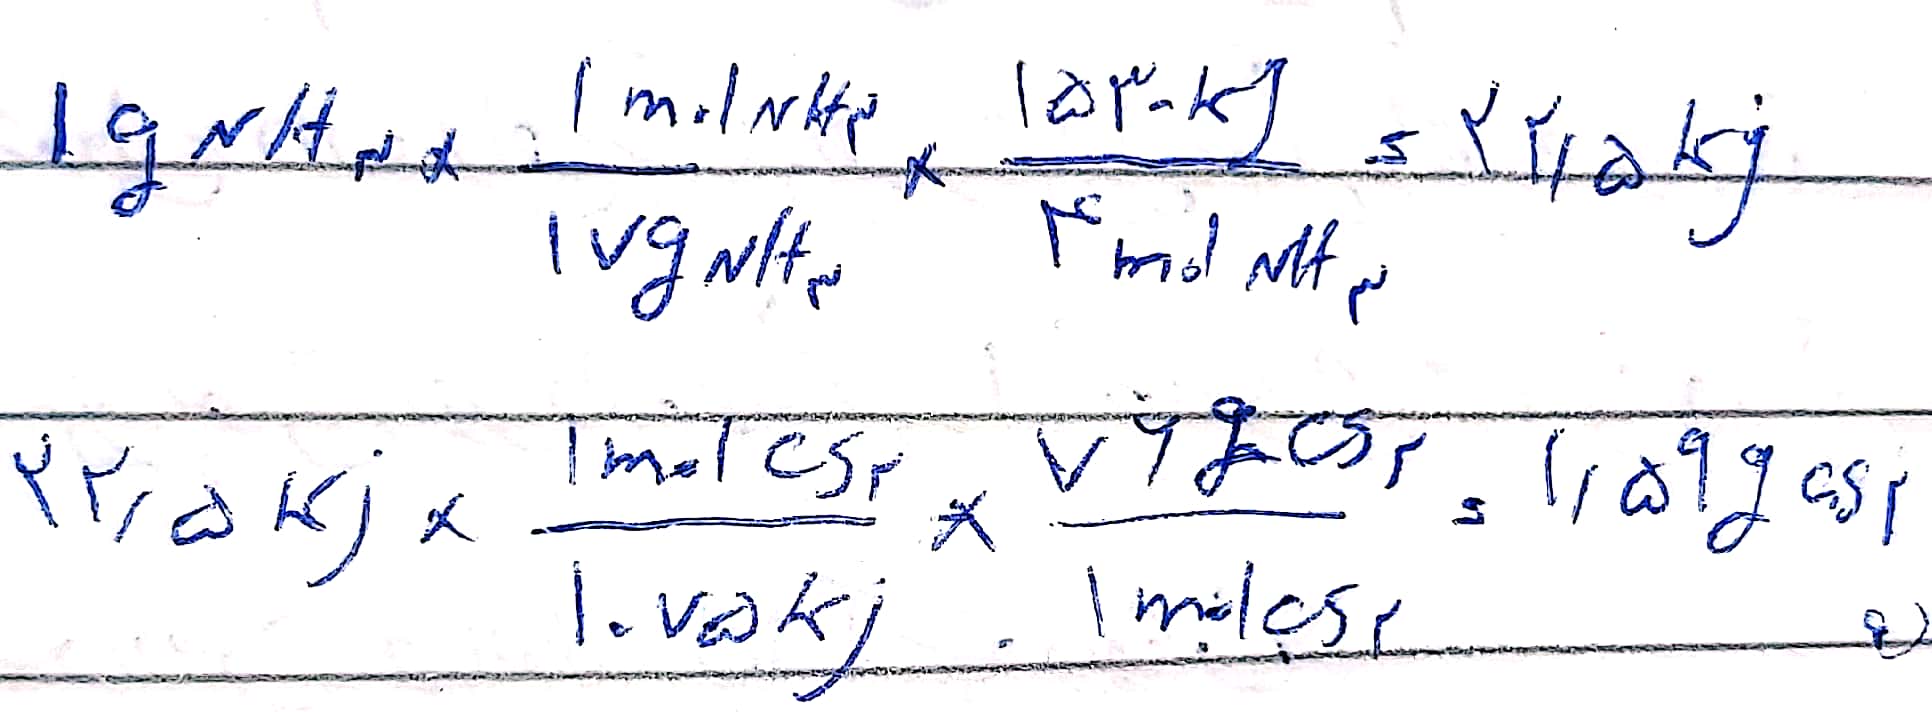 ۱ g NH۳ × ۱ mol NH۳ / ۱۷ g NH۳ × ۱۵۳۰ kj / ۴ mol NH۳ = ۲۲,۵ kj
۲۲,۵ kj × ۱ mol CS۲ / ۱۰۷۵ kj × ۷۶ g CS۲ / ۱ mol CS۲ = ۱,۵۹ g CS۲